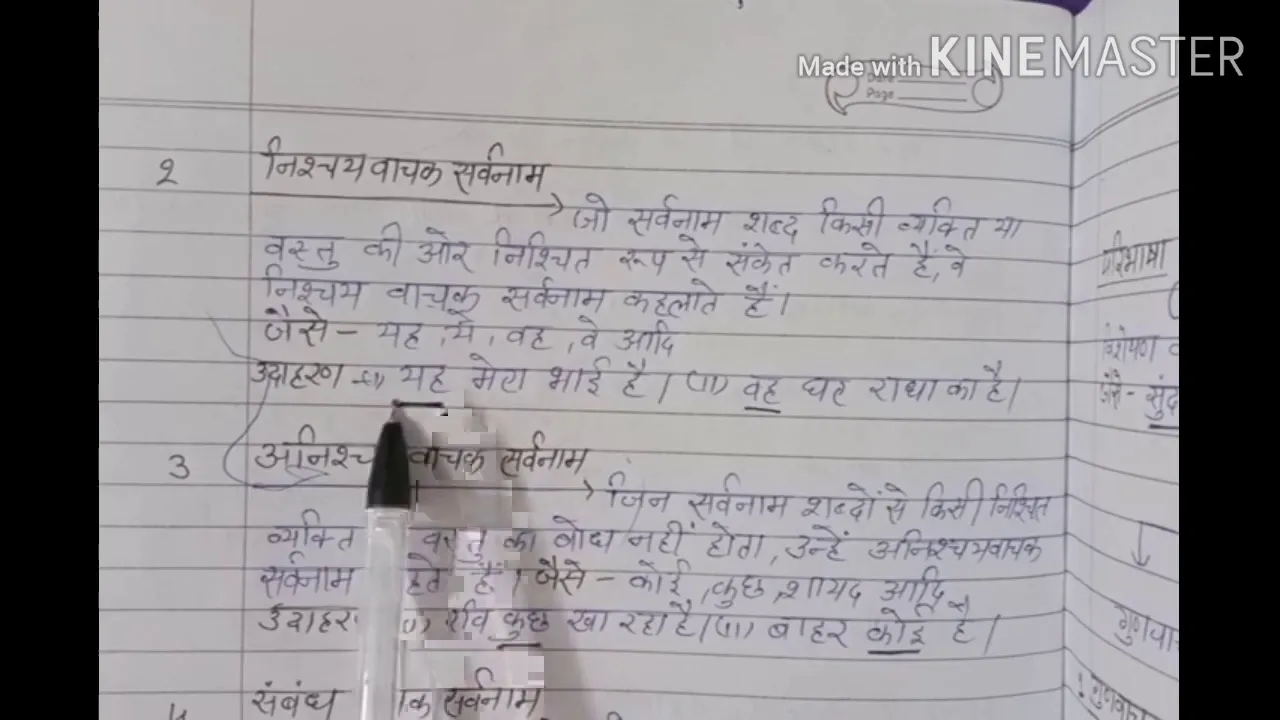 Made with KINEMASTER
Date
Page
2 निश्चयवाचक सर्वनाम
जो सर्वनाम शब्द किसी व्यक्ति या
वस्तु की ओर निश्चित रूप से संकेत करते हैं, वे
निश्चय वाचक सर्वनाम कहलाते हैं।
जैसे - यह, ये, वह, वे आदि
उदाहरण -(i) यह मेरा भाई है। (ii) वह घर राधा का है।
3 वाचक सर्वनाम
जिन सर्वनाम शब्दों से किसी निश्चित
व्यक्ति वस्तु का बोध नहीं होता, उन्हें अनिश्चयवाचक
सर्वनाम हैं। जैसे - कोई, कुछ, शायद आदि
रवि कुछ खा रहा है। (ii) बाहर कोई है।
संबंध सर्वनाम
परिभाषा
विशेषण
जैसे -